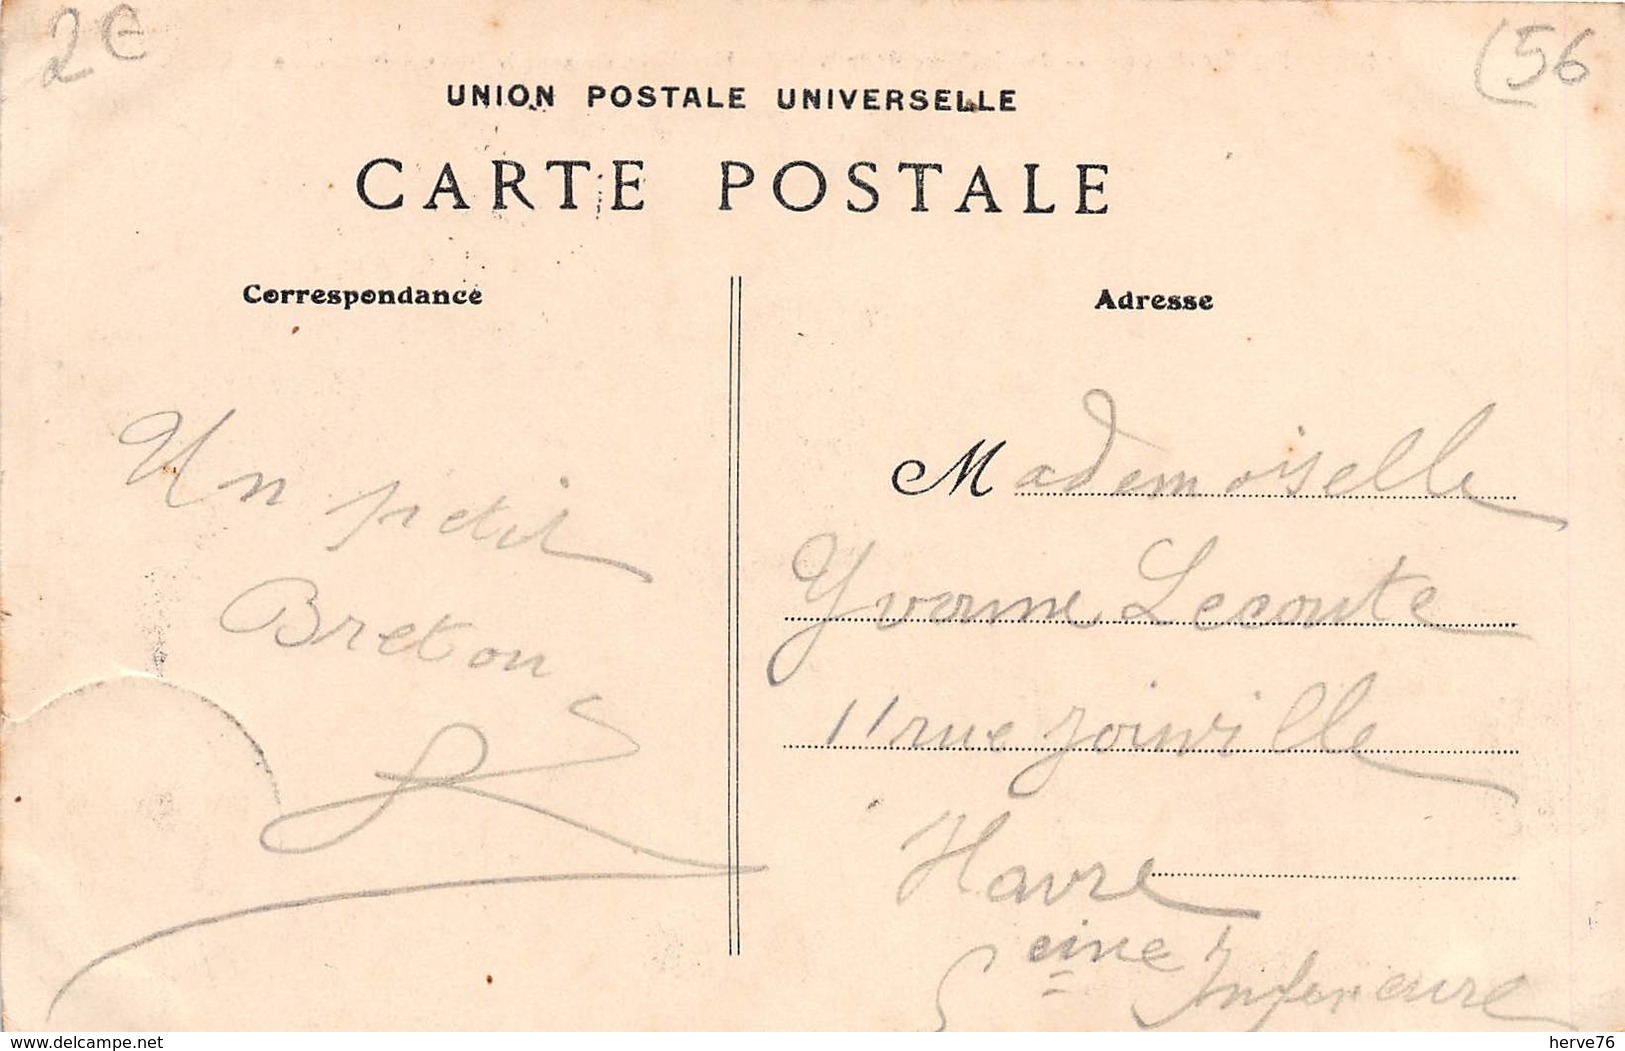 2€
(56
UNION POSTALE UNIVERSELLE
CARTE POSTALE
Correspondance
Adresse
Un petit
Breton
Mademoiselle
Yvonne Lecoute
11 rue Joinville
Havre
Seine Inferieure
www.delcampe.net
herve76